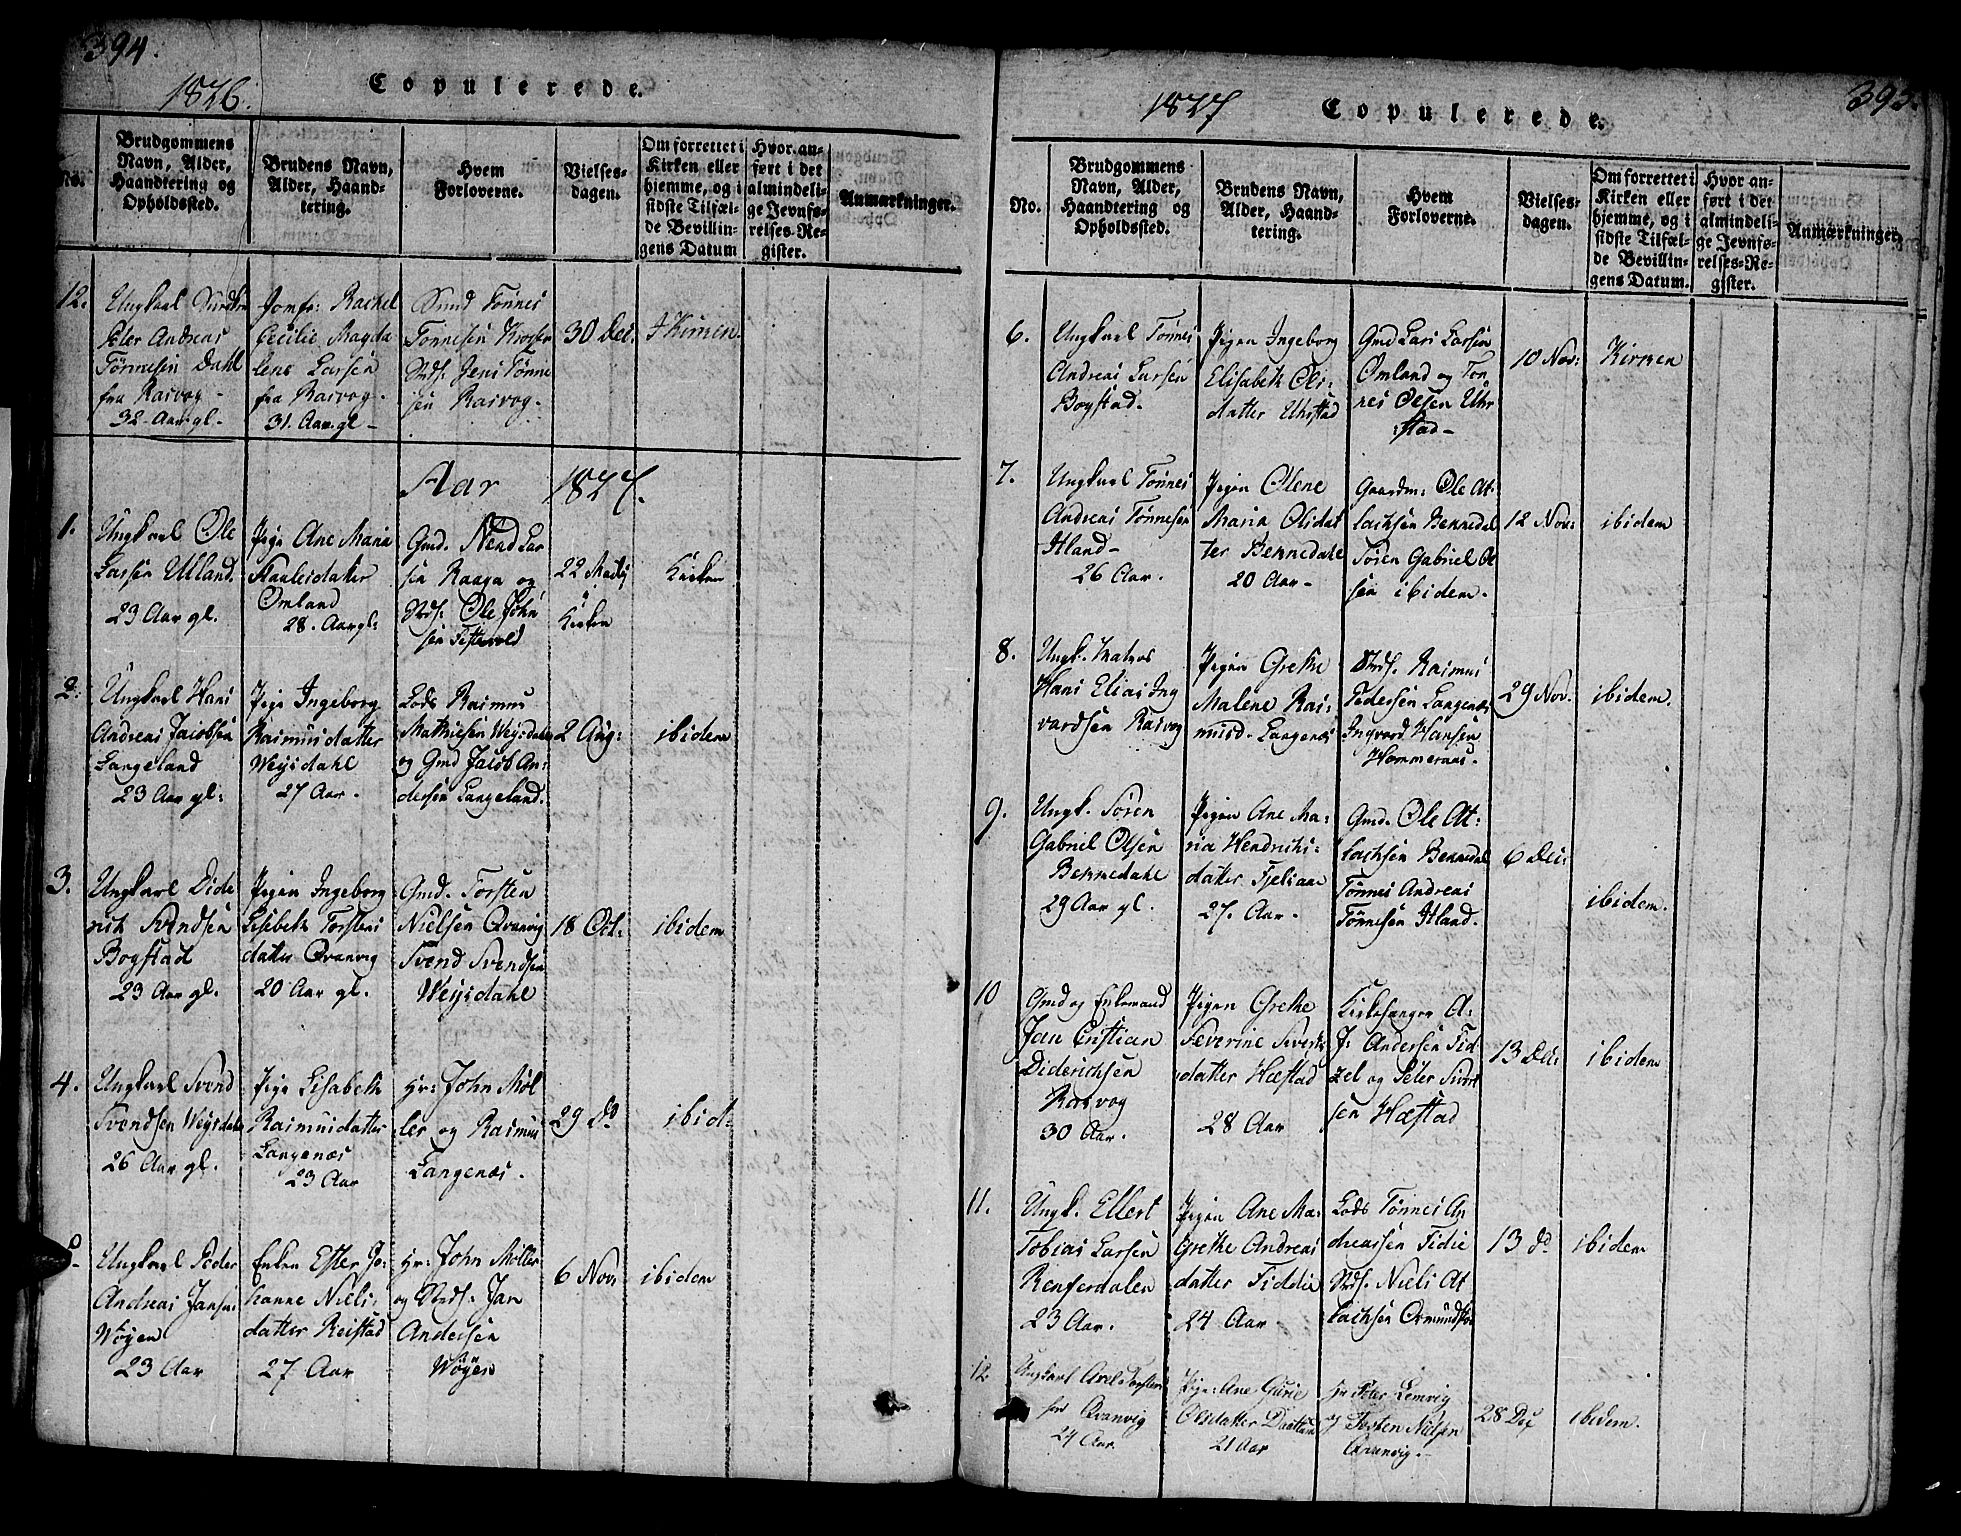 394.
1826.
Copulerede.
No.
Brudgommens
Navn, Alder,
Haandtering og
Opholdssted.
Brudens Navn,
Alder, Haand-
tering.
Hvem
Forloverne.
Vielses-
dagen.
Om forrettet i
Kirken eller
hjemme, og i
sidste Tilfæl-
de Bevillin-
gens Datum
Hvor an-
ført i det
almindeli-
ge Jevnfø-
relses-Re-
gister.
Anmærkninger.
12.
Ungkarl
Peter Andreas
Tönnesen Dahl
fra Rasvog -
32 Aar gl -
Jomfr: Rachel
Cecilie Magda
lene Larsen
fra Rasvog -
31. Aar. gl -
Sund Tönnes
Tönnesen
Strds: Jens Tönne
sen Rasvog -
30 Dec:
I Kirken.
Aar 1827.
1.
Ungkarl Ole
Larsen Ulland.
23 Aar gl.
Pige Ane Maria
Staalesdatter
Omland
28. Aar gl:
Gmd. Lar
sen Raaga og
Strds: Ole John
sen
22 Martz
i
Kirken
Kirken
2.
Ungkarl Hans
Andreas Jacobsen
Langeland
23 Aar gl:
Pige Ingeborg
Rasmusdatter
Weysdahl
27 Aar.
Lods Rasmus
Mathiesen Weysdahl
og Gmd Jacob An:
dersen Langeland.
2 Aug:
ibidem
3.
Ungkarl Dide
rich Svendsen
Bogstad
23 Aar gl.
Pigen Ingeborg
Lisebeth Torstens
datter Qvanvig
20 Aar gl.
Gmd. Torsten
Nielsen Qvanvig
Svend Svendsen
Weysdahl
18 Oct:
ibidem
4.
Ungkarl Svend
Svendsen Weysdahl
26 Aar gl.
Pige Lisabeth
Rasmusdatter
Langenæs
23 Aar
Hr: John Möl
ler og Rasmus
Langenæs.
29 do
ibid:
5
Ungkarl Peder
Andreas Jansen
Wöyen
23 Aar
Enken Ester Jo:
hanne Niels:
datter Reistad
27 Aar
Hr: John Möller
og Strds: Jan
Andersen
Wöyen
6 Nov:
ibidem
1827
Copulerede.
395.
No.
Brudgommens
Navn, Alder,
Haandtering og
Opholdssted.
Brudens Navn,
Alder, Haand-
tering.
Hvem
Forloverne.
Vielses-
dagen.
Om forrettet i
Kirken eller
hjemme, og i
sidste Tilfæl-
de Bevillin-
gens Datum.
Hvor an-
ført i det
almindeli-
ge Jevnfø-
relses-Re-
gister.
Anmærkninger.
6.
Ungkarl Tönnes
Andreas Larsen
Bogstad.
Pigen Ingeborg
Elisabeth Ols:
datter Uhrstad
Gmd Lars Larsen
Omland og Tön
nes Olsen Uhr
stad -
10 Nov:
Kirken
7.
Ungkarl Tönnes
Andreas Tönnesen
Itland -
26 Aar.
Pigen Olene
Maria Olsdat
ter Bekkedahl
20 Aar -
Gaardm: Ole At
lachsen Bekkedal
Sören Gabriel Ol
sen ibidem.
12 Nov:
ibidem
8.
Ungk. Matros
Hans Elias Ing
vardsen Rasvog
Pigen Grethe
Malene Ras:
musd. Langenæs
Strds. Rasmus
Pedersen Langenæs
Ingvard Hansen
Hommeraas.
29 Nov.
ibidem.
9.
Ungk. Sören
Gabriel Olsen
Bekkedahl
29 Aar gl.
Pigen Ane Ma:
ria Hendriks:
datter
27. Aar -
Gmd. Ole At:
lachsen Bekkedal
Tönnes Andreas
Tönnesen Itland.
6 Dec:
ibidem.
10
Gmd og Enkemand
Jan Cristian
Diderichsen
Rasvog
30 Aar.
Pigen Grethe
Severine Siverts
datter Hæstad
28 Aar
Kirkesanger A:
J: Andersen Tid
zel og Peter Sivert
sen Hæstad
13 Dec:
ibidem
11.
Ungk. Ellert
Tobias Larsen
23 Aar.
Pigen Ane Ma:
Grethe Andreas
datter Fiddie
24 Aar
Lods Tönnes An
dreassen Fidie
Strds. Niels At
lachsen
13 do
ibidem
12
Ungkarl Axel Torsten
sen Qvanvig
24 Aar
Pige: Ane Gurie
Olsdatter
21 Aar
Hr Peter Lemvig
og Torsten Nielsen
Qvanvig -
28 Dec
ibidem.